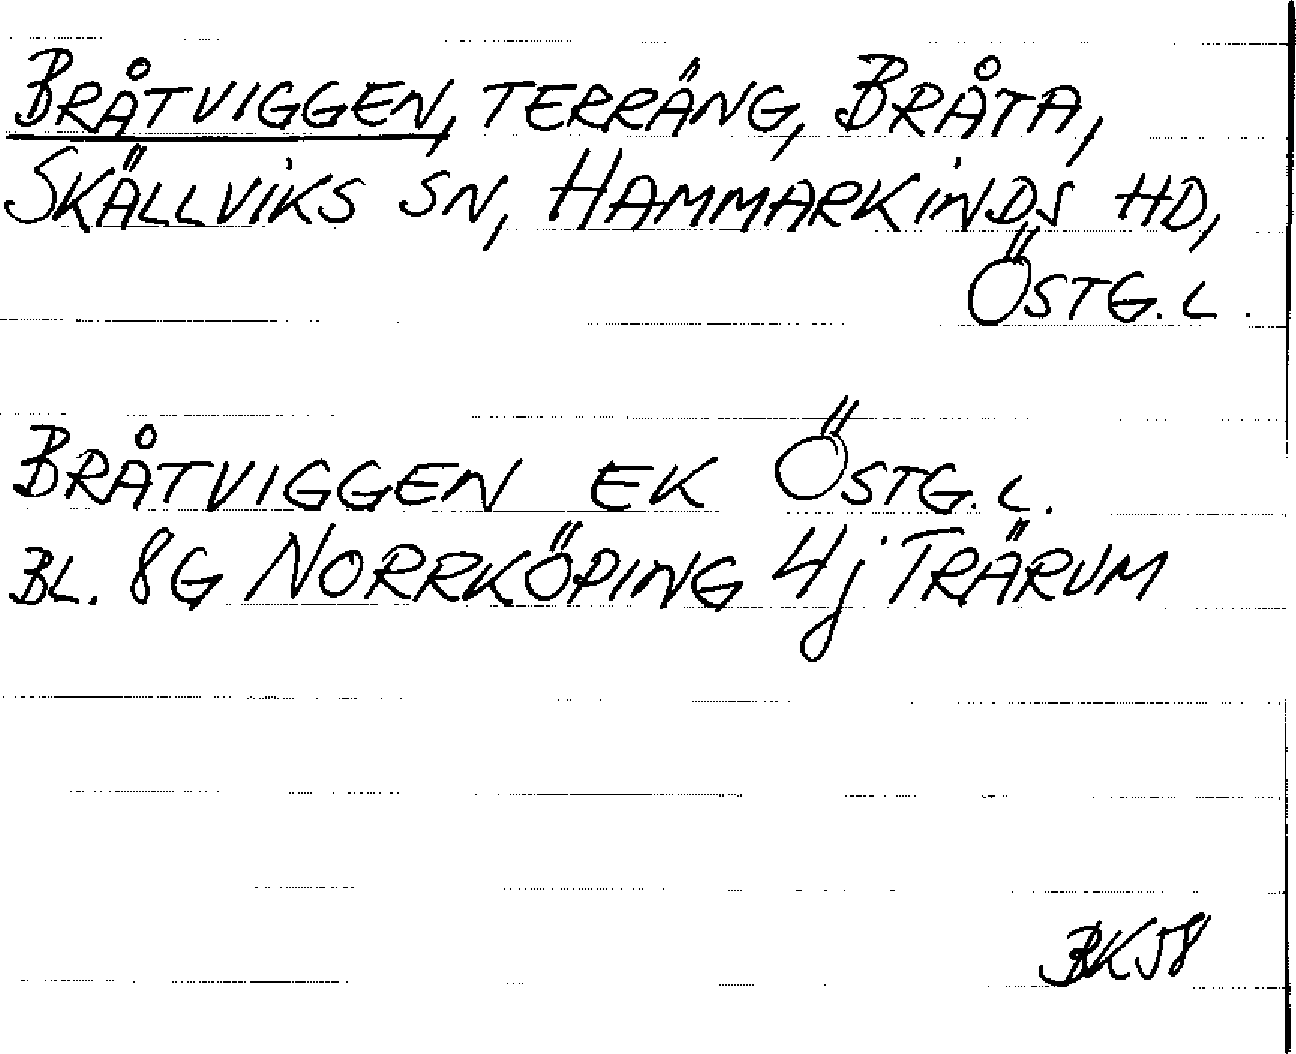 BRÅTVIGGEN, TERRÄNG, BRÅTA,
SKÄLLVIKS SN, HAMMARKINDS HD,
ÖSTG. L.
BRÅTVIGGEN EK ÖSTG. L.
BL. 8G NORRKÖPING 4j TRÄRUM
BK58